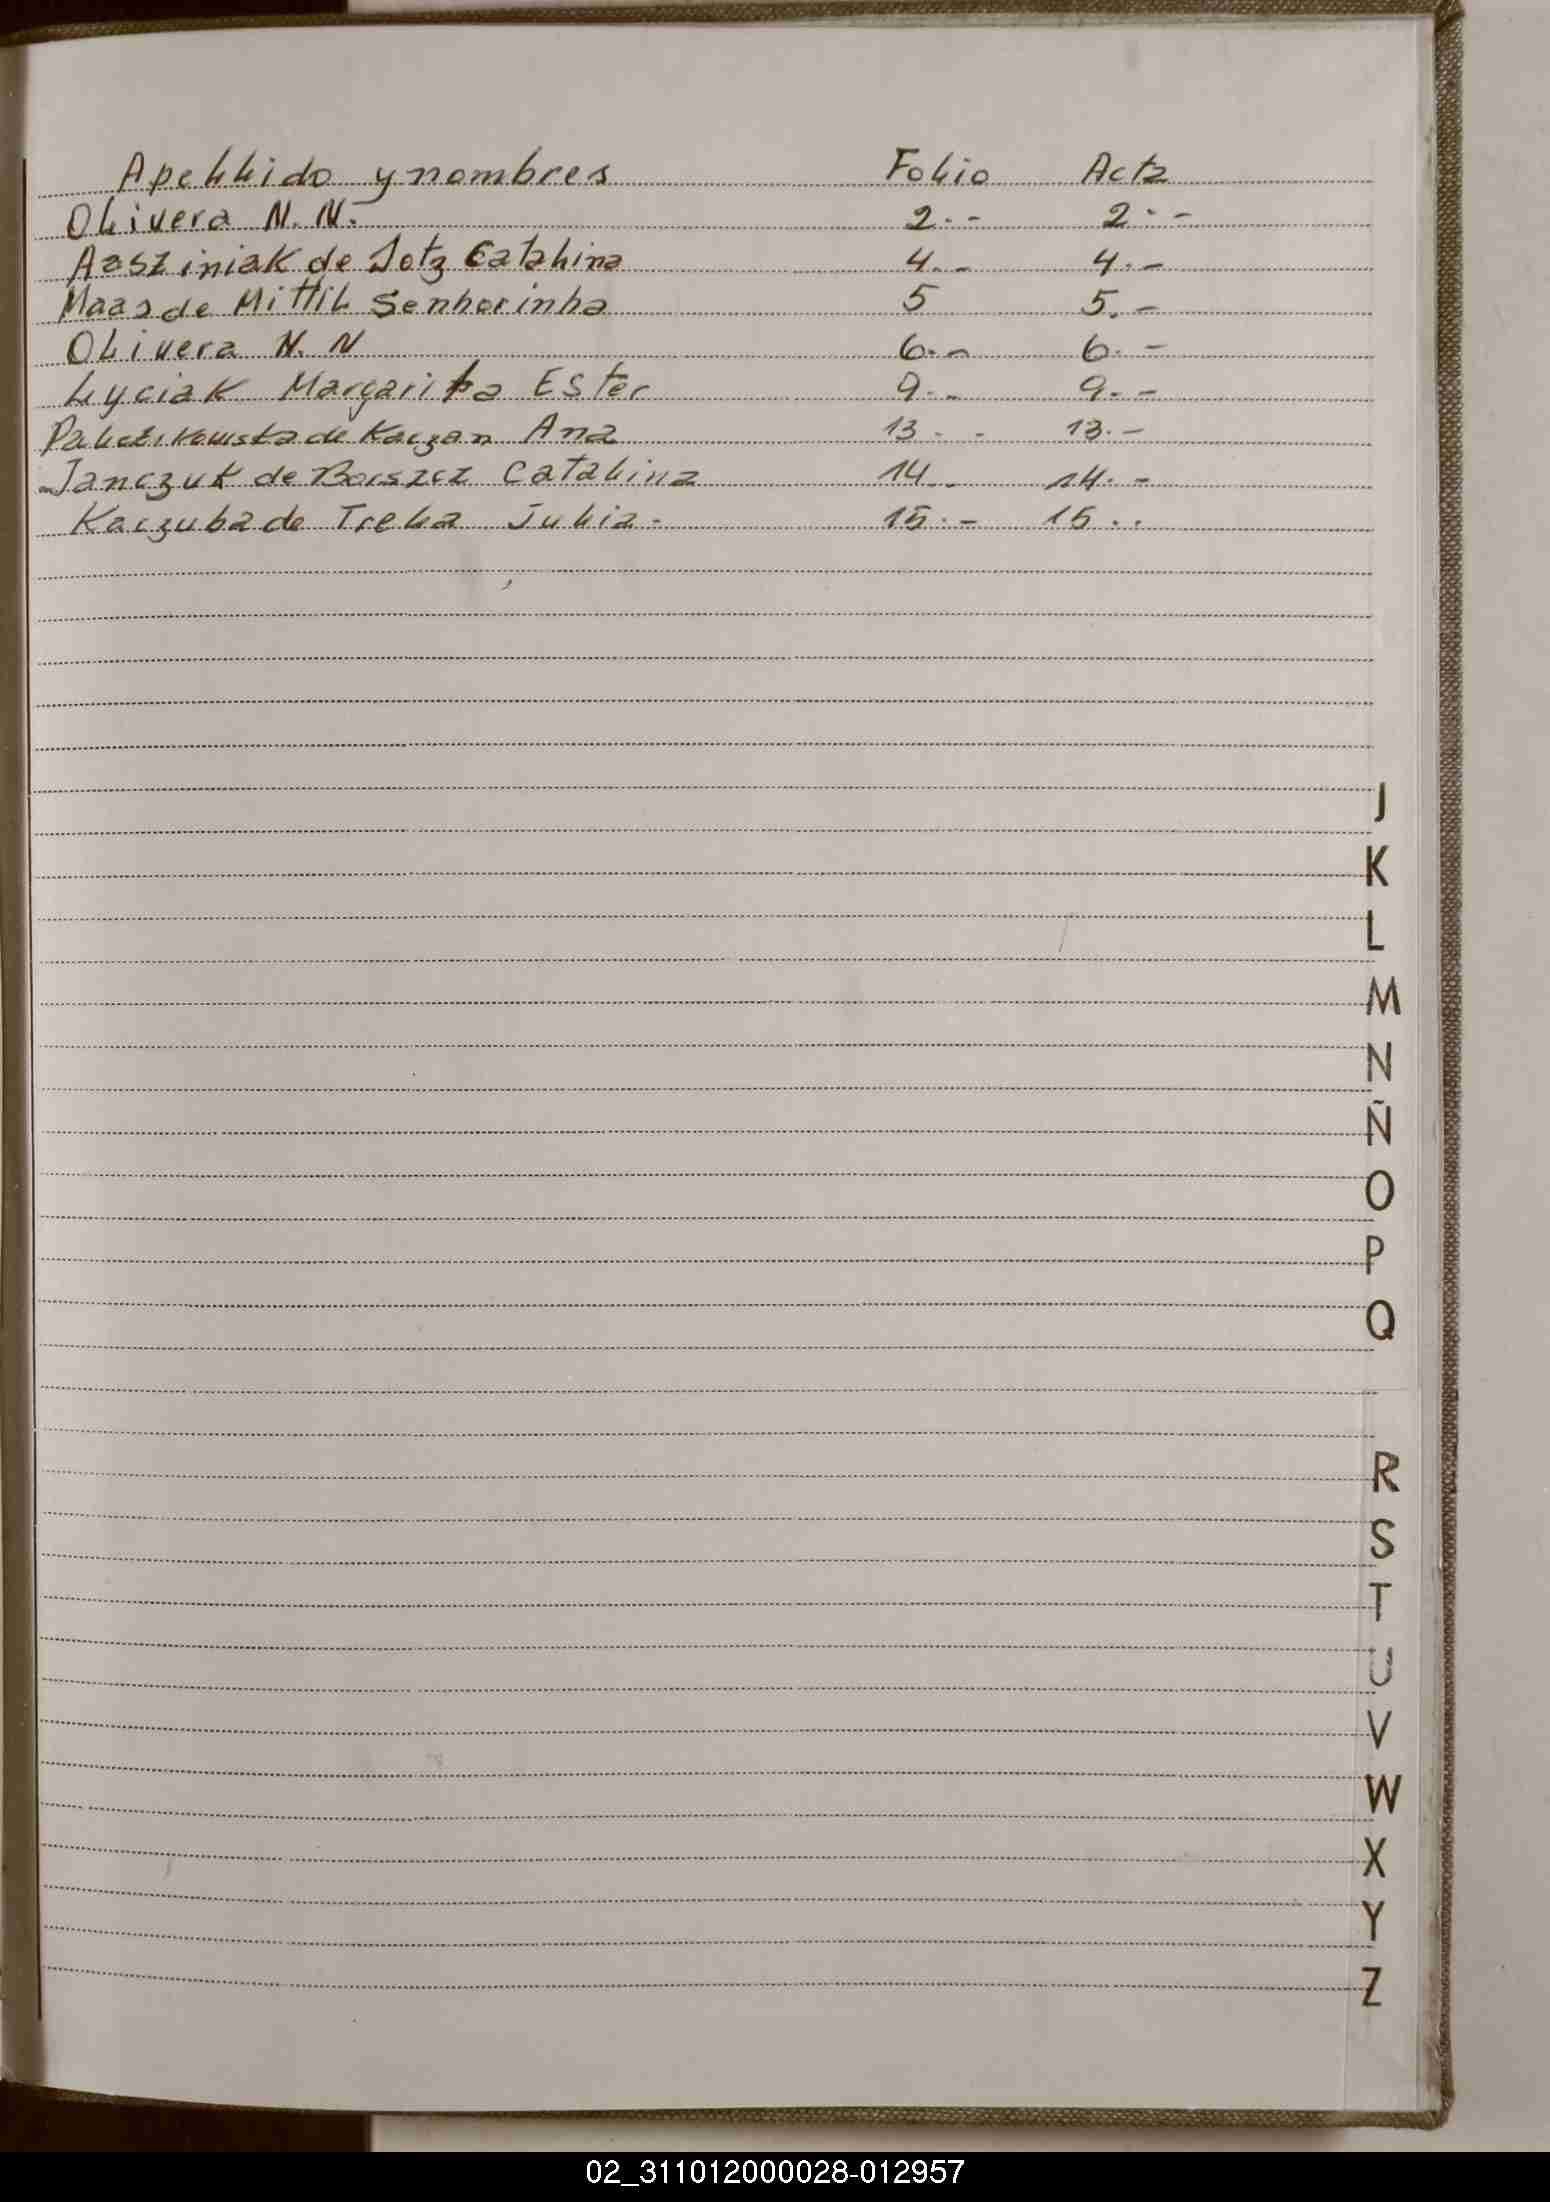 Apellido y nombres Folio Acta
Olivera N. N.- 2.- 2.-
Aasziniak de Jotz Catalina 4.- 4.-
Maas de Mittil Senhorinha 5 5.-
Olivera N. N 6.- 6.-
Lyciak Margarita Ester 9.- 9.-
de Kaczan Ana 13.- 13.-
Janczuk de Borszcz Catalina 14.- 14.-
Kaczuba de Trela Julia.- 15.- 15..
J
K
L
M
N
Ñ
O
P
Q
R
S
T
U
V
W
X
Y
Z
02_311012000028-012957